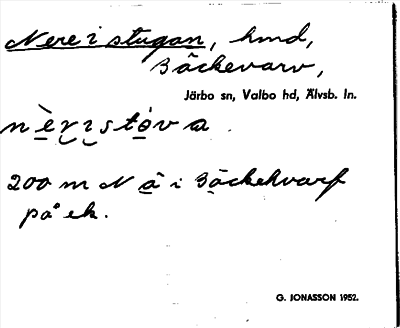 Nere i stugan, hmd,
Bäckevarv,
Järbo sn, Valbo hd, Älvsb. ln.
nèristóva.
200 m N å i Bäckehvarf
på ek.
G. JONASSON 1952.